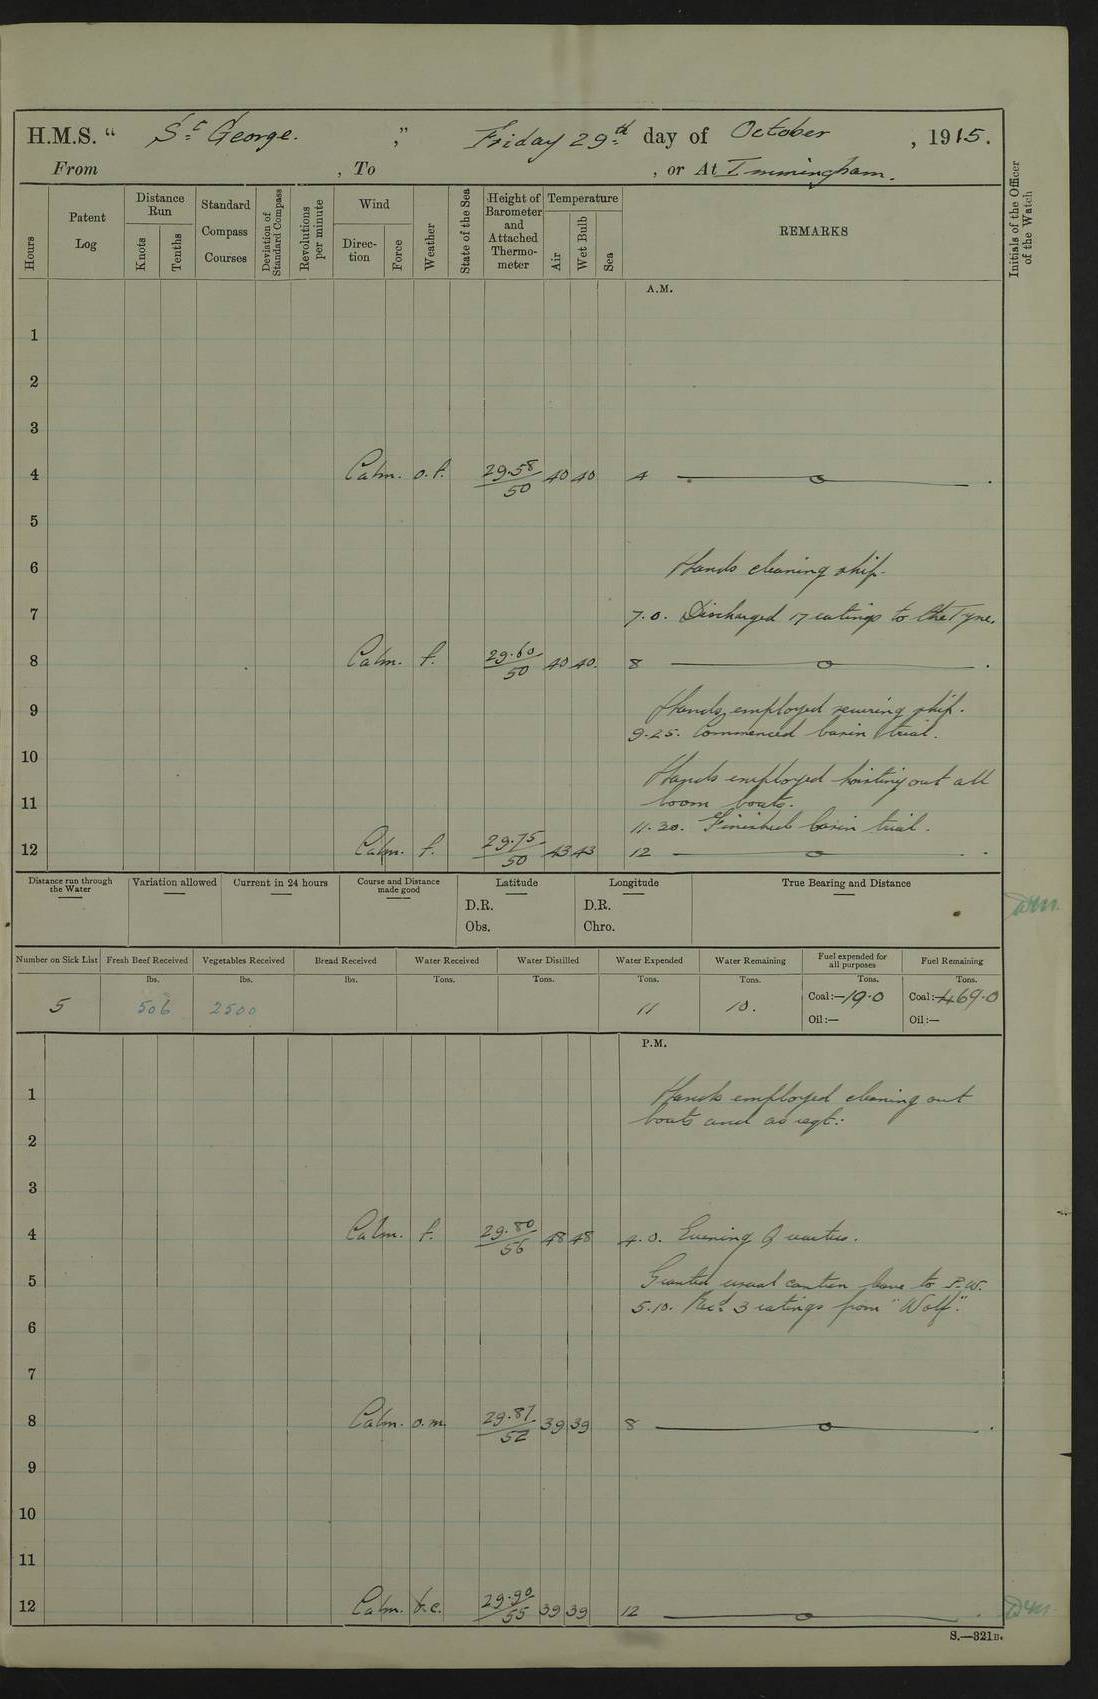 H.M.S. “ St George. ” Friday 29th day of October, 1915.
From , To , or At Immingham.
Hours
Patent Log
Distance Run
Knots
Tenths
Standard Compass Courses
Deviation of Standard Compass
Revolutions per minute
Wind
Direction
Force
Weather
State of the Sea
Height of Barometer and Attached Thermometer
Temperature
Air
Wet Bulb
Sea
REMARKS
Initials of the Officer of the Watch
A.M.
1
2
3
4 Calm. o.f. 29.58/50 40 40 4
5
6 Hands cleaning ship.
7 7.0. Discharged 17 ratings to the Tyne.
8 Calm. f. 29.60/50 40 40. 8
9 Hands employed securing ship.
9.25. Commenced basin trial.
10 Hands employed hoisting out all
11 boom boats.
11.30. Finished basin trial.
12 Calm. f. 29.75/50 43 43 12
Distance run through the Water
Variation allowed
Current in 24 hours
Course and Distance made good
Latitude
D.R.
Obs.
Longitude
D.R.
Chro.
True Bearing and Distance
Number on Sick List
Fresh Beef Received
Vegetables Received
Bread Received
Water Received
Water Distilled
Water Expended
Water Remaining
Fuel expended for all purposes
Fuel Remaining
lbs. lbs. lbs. Tons. Tons. Tons. Tons. Tons. Tons.
5 506 2500 11 10. Coal:—19.0 Coal:—469.0
Oil:— Oil:—
P.M.
1 Hands employed cleaning out
boats and as reqt:
2
3
4 Calm. f. 29.80/56 48 48 4.0. Evening Quarters.
5 Granted usual canteen leave to P.W.
5.10. Recd 3 ratings from "Wolf".
6
7
8 Calm. o.m. 29.87/52 39 39 8
9
10
11
12 Calm. b.c. 29.90/55 39 39 12
S.—321B.